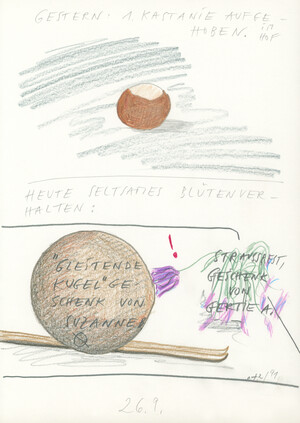 GESTERN 1. KASTANIE AUFGE-
HOBEN. IM
HOF
HEUTE SELTSAMES BLÜTENVER-
HALTEN:
!
"GLEITENDE
KUGEL" GE-
SCHENK VON
SUZANNE
GESCHENK
VON
GERTIE A.
26.9.